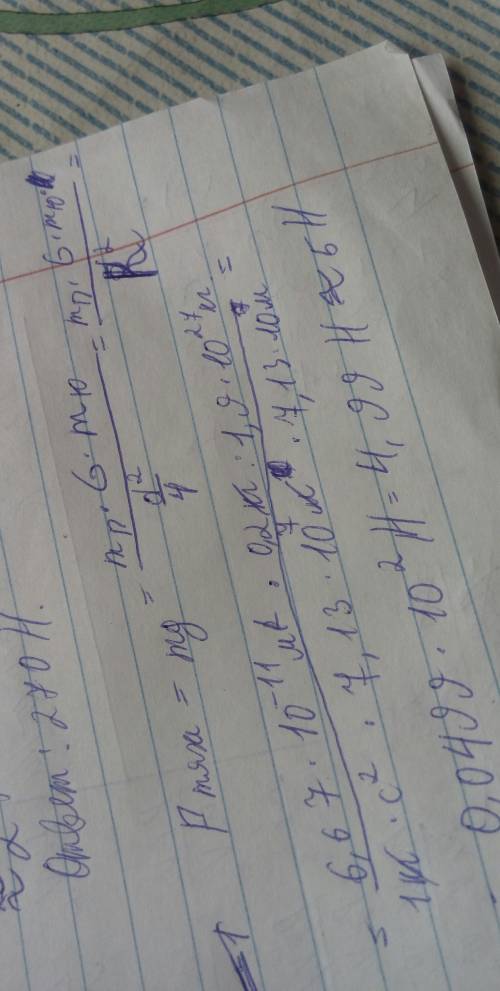 ≈ 2
Ответ: 270 Н.
Fтяж = mg = mп · G · mю / (d² / 4) = mп · G · mю / R² =
= 6,67 · 10⁻¹¹ м · 0,2 кг · 1,9 · 10²⁷ кг / 1 кг · с² · 7,13 · 10⁷ м · 7,13 · 10⁷ м =
0,0499 · 10² Н = 4,99 Н ≈ 5 Н